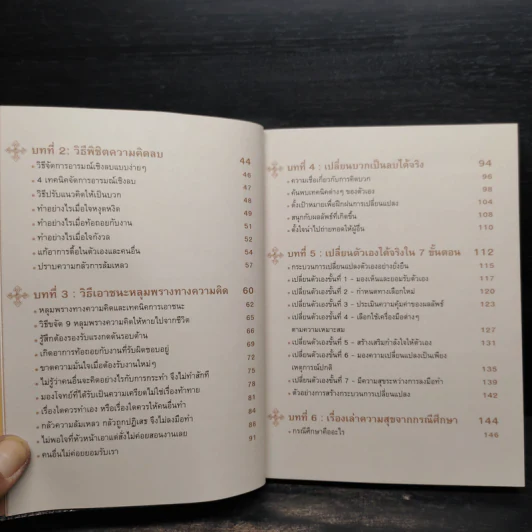 บทที่ 2: วิธีพิชิตความคิดลบ 44
• วิธีจัดการอารมณ์เชิงลบแบบง่ายๆ 46
• 4 เทคนิคจัดการอารมณ์เชิงลบ 47
• วิธีปรับแนวคิดให้เป็นบวก 49
• ทำอย่างไรเมื่อใจหงุดหงิด 50
• ทำอย่างไรเมื่อท้อถอยกับงาน 51
• ทำอย่างไรเมื่อใจกังวล 52
• แก้อาการดื้อในตัวเองและคนอื่น 54
• ปราบความกลัวการล้มเหลว 57
บทที่ 3 : วิธีเอาชนะหลุมพรางทางความคิด 60
• หลุมพรางทางความคิดและเทคนิคการเอาชนะ 62
• วิธีขจัด 9 หลุมพรางความคิดให้หายไปจากชีวิต 65
• รู้สึกต้องรองรับแรงกดดันรอบด้าน
• เกิดอาการท้อถอยกับงานที่รับผิดชอบอยู่
• ขาดความมั่นใจเมื่อต้องรับงานใหม่ๆ
• ไม่รู้ว่าคนอื่นจะคิดอย่างไรกับการกระทำ จึงไม่ทำสักที
• มองโจทย์ที่ได้รับเป็นความเครียดไม่ใช่เรื่องท้าทาย
• เรื่องใดควรทำเอง หรือเรื่องใดควรให้คนอื่นทำ
• กลัวความล้มเหลว กลัวถูกปฏิเสธ จึงไม่ลงมือทำ
• ไม่พอใจที่หัวหน้าเอาแต่สั่งไม่ค่อยสอนงานเลย
• คนอื่นไม่ค่อยยอมรับเรา 91
บทที่ 4 : เปลี่ยนบวกเป็นลบได้จริง 94
• ความเชื่อเกี่ยวกับการคิดบวก 96
• ค้นพบเทคนิคต่างๆ ของตัวเอง 98
• ตั้งเป้าหมายเพื่อฝึกฝนการเปลี่ยนแปลง 104
• สนุกกับผลลัพธ์ที่เกิดขึ้น 108
• ตั้งใจนำไปถ่ายทอดให้ผู้อื่น 110
บทที่ 5 : เปลี่ยนตัวเองได้จริงใน 7 ขั้นตอน 112
• กระบวนการเปลี่ยนแปลงตัวเองอย่างยั่งยืน 115
• เปลี่ยนตัวเองขั้นที่ 1 - มองเห็นและยอมรับตัวเอง 117
• เปลี่ยนตัวเองขั้นที่ 2 - กำหนดทางเลือกใหม่ 120
• เปลี่ยนตัวเองขั้นที่ 3 - ประเมินความคุ้มค่าของผลลัพธ์ 123
• เปลี่ยนตัวเองขั้นที่ 4 - เลือกใช้เครื่องมือต่างๆ
ตามความเหมาะสม 127
• เปลี่ยนตัวเองขั้นที่ 5 - สร้างเสริมกำลังใจให้ตัวเอง 131
• เปลี่ยนตัวเองขั้นที่ 6 - มองความเปลี่ยนแปลงเป็นเพียง
เหตุการณ์ปกติ 135
• เปลี่ยนตัวเองขั้นที่ 7 - มีความสุขระหว่างการลงมือทำ 139
• ตัวอย่างการสร้างกระบวนการเปลี่ยนแปลง 142
บทที่ 6 : เรื่องเล่าความสุขจากกรณีศึกษา 144
• กรณีศึกษาคืออะไร 146